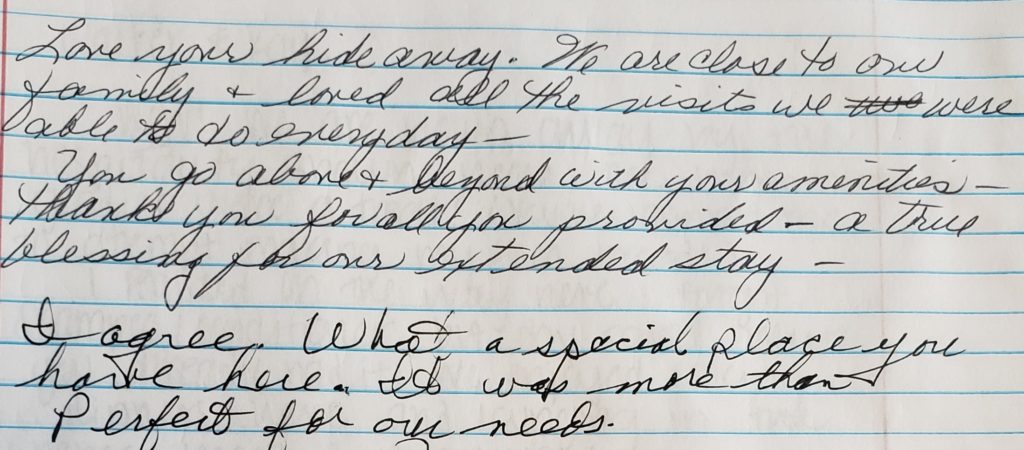 Love your hide away. We are close to our
family & loved all the visits we were
able to do everyday -
You go above & beyond with your amenities -
Thank you for all you provided - a true
blessing for our extended stay -
I agree. What a special place you
have here. It was more than
Perfect for our needs.